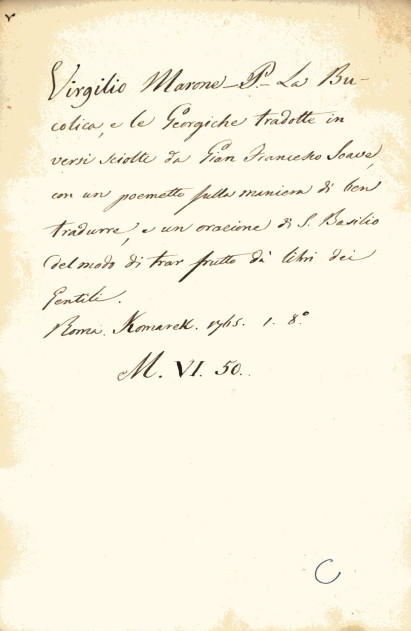 Virgilio Marone P. La Bu-
colica, e le Georgiche tradotte in
versi sciolti da Gian Francesco Soave,
con un poemetto sulla maniera di ben
tradurre, e un orazione di S. Basilio
del modo di trar frutto da libri dei
Gentili.
Roma. Komarek. 1765. 1. 8.º
M. VI. 50.
C